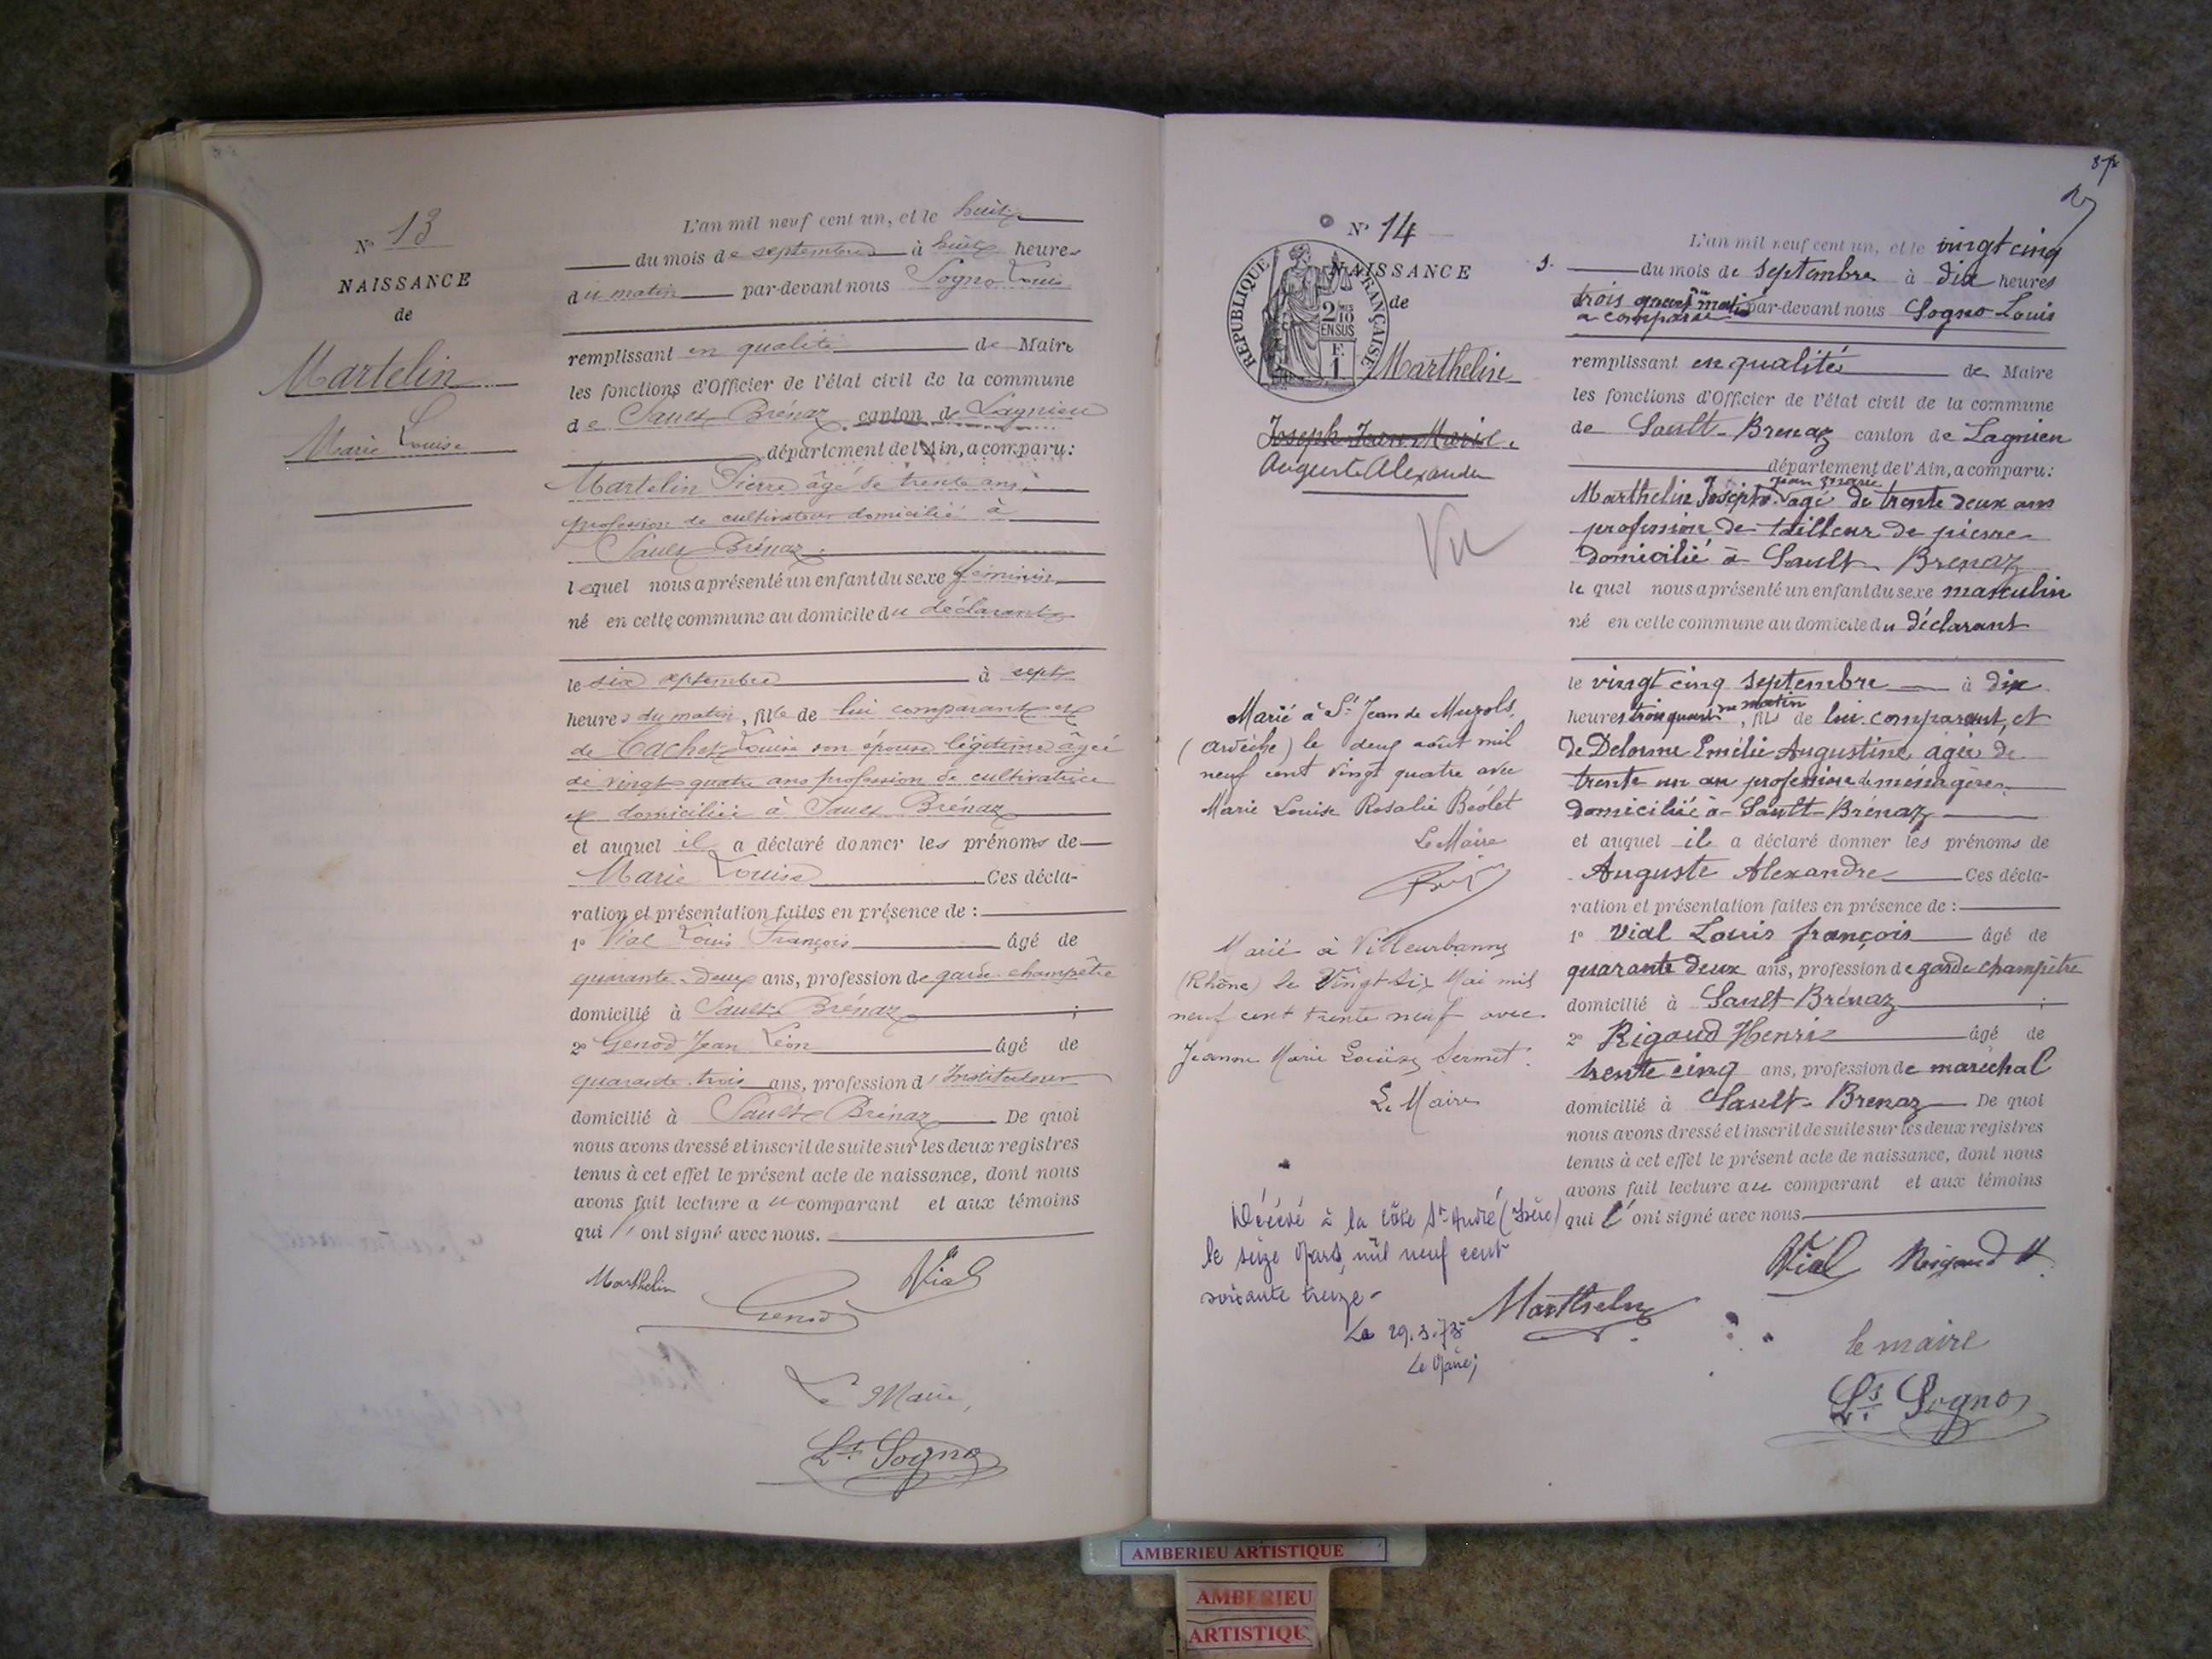 N° 13
NAISSANCE
de
Martelin
Marie Louise
L'an mil neuf cent un, et le huit
du mois de septembre à huit heures
du matin par-devant nous Sogno Louis
remplissant en qualité de Maire
les fonctions d'Officier de l'état civil de la commune
de Sault Brénaz canton de Lagnieu
département de l'Ain, a comparu:
Martelin Pierre âgé de trente ans
profession de cultivateur domicilié à
Sault Brénaz
lequel nous a présenté un enfant du sexe féminin
né en cette commune au domicile du déclarant
le six septembre à sept
heures du matin, fille de lui comparant et
de Cachet Louise son épouse légitime âgée
de vingt quatre ans profession de cultivatrice
et domiciliée à Sault Brénaz
et auquel il a déclaré donner les prénoms de
Marie Louise Ces décla-
ration et présentation faites en présence de :
1° Vial Louis François âgé de
quarante-deux ans, profession de garde champêtre
domicilié à Sault Brénaz ;
2° Genod Jean Léon âgé de
quarante trois ans, profession d'Instituteur
domicilié à Sault Brénaz De quoi
nous avons dressé et inscrit de suite sur les deux registres
tenus à cet effet le présent acte de naissance, dont nous
avons fait lecture au comparant et aux témoins
qui l'ont signé avec nous.
Marthelin Vial
Genod
Le Maire,
Ls Sogno
N° 14
REPUBLIQUE FRANÇAISE
2/10 EN SUS
F. 1
NAISSANCE
de
Marthelin
Joseph Jean Marie
Auguste Alexandre
Vu
Marié à St Jean de Muzols
(Ardèche) le deux août mil
neuf cent vingt quatre avec
Marie Louise Rosalie Béolet
Le Maire
Marié à Villeurbanne
(Rhône) le Vingt six Mai mil
neuf cent trente neuf avec
Jeanne Marie Louise Sermet.
Le Maire
Décédé à la Côte St André (Isère)
le seize Mars mil neuf cent
soixante treize -
Le Maire,
L'an mil neuf cent un, et le vingt cinq
du mois de septembre à dix heures
trois quart du matin par-devant nous Sogno Louis
a comparu
remplissant en qualité de Maire
les fonctions d'Officier de l'état civil de la commune
de Sault-Brenaz canton de Lagnieu
département de l'Ain, a comparu:
Marthelin Joseph Jean Marie agé de trente deux ans
profession de tailleur de pierre
domicilié à Sault Brenaz
le quel nous a présenté un enfant du sexe masculin
né en cette commune au domicile du déclarant
le vingt cinq septembre à dix
heures trois quart du matin, fils de lui comparant, et
de Delorme Emélie Augustine agée de
trente un an profession de ménagère
domiciliée à Sault-Brénaz
et auquel il a déclaré donner les prénoms de
Auguste Alexandre Ces décla-
ration et présentation faites en présence de :
1° Vial Louis françois âgé de
quarante deux ans, profession de garde champêtre
domicilié à Sault Brénaz ;
2° Rigaud Henri âgé de
trente cinq ans, profession de maréchal
domicilié à Sault-Brenaz De quoi
nous avons dressé et inscrit de suite sur les deux registres
tenus à cet effet le présent acte de naissance, dont nous
avons fait lecture au comparant et aux témoins
qui l'ont signé avec nous.
Vial Rigaud H
Marthelin
le maire
Ls Sogno
AMBERIEU ARTISTIQUE
AMBERIEU
ARTISTIQU